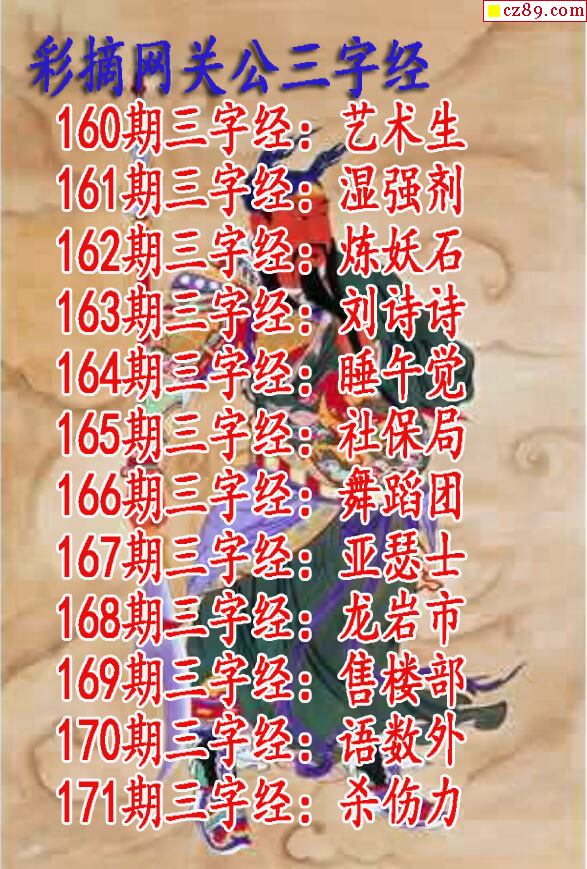 cz89.com
彩摘网关公三字经
160期三字经：艺术生
161期三字经：湿强剂
162期三字经：炼妖石
163期三字经：刘诗诗
164期三字经：睡午觉
165期三字经：社保局
166期三字经：舞蹈团
167期三字经：亚瑟士
168期三字经：龙岩市
169期三字经：售楼部
170期三字经：语数外
171期三字经：杀伤力